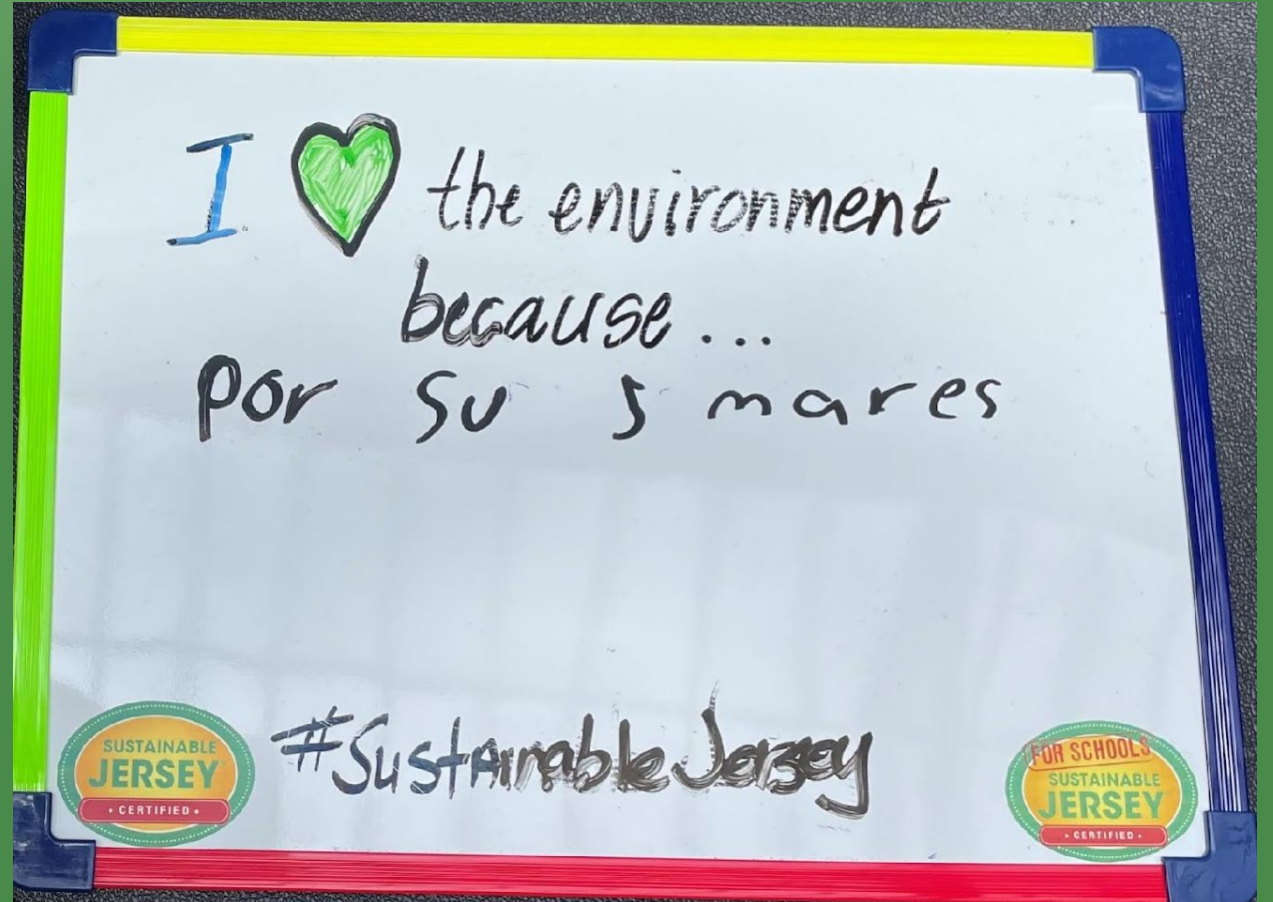 I 💚 the environment
because...
por su s mares
SUSTAINABLE
JERSEY
• CERTIFIED •
#SustainableJersey
FOR SCHOOLS
SUSTAINABLE
JERSEY
• CERTIFIED •